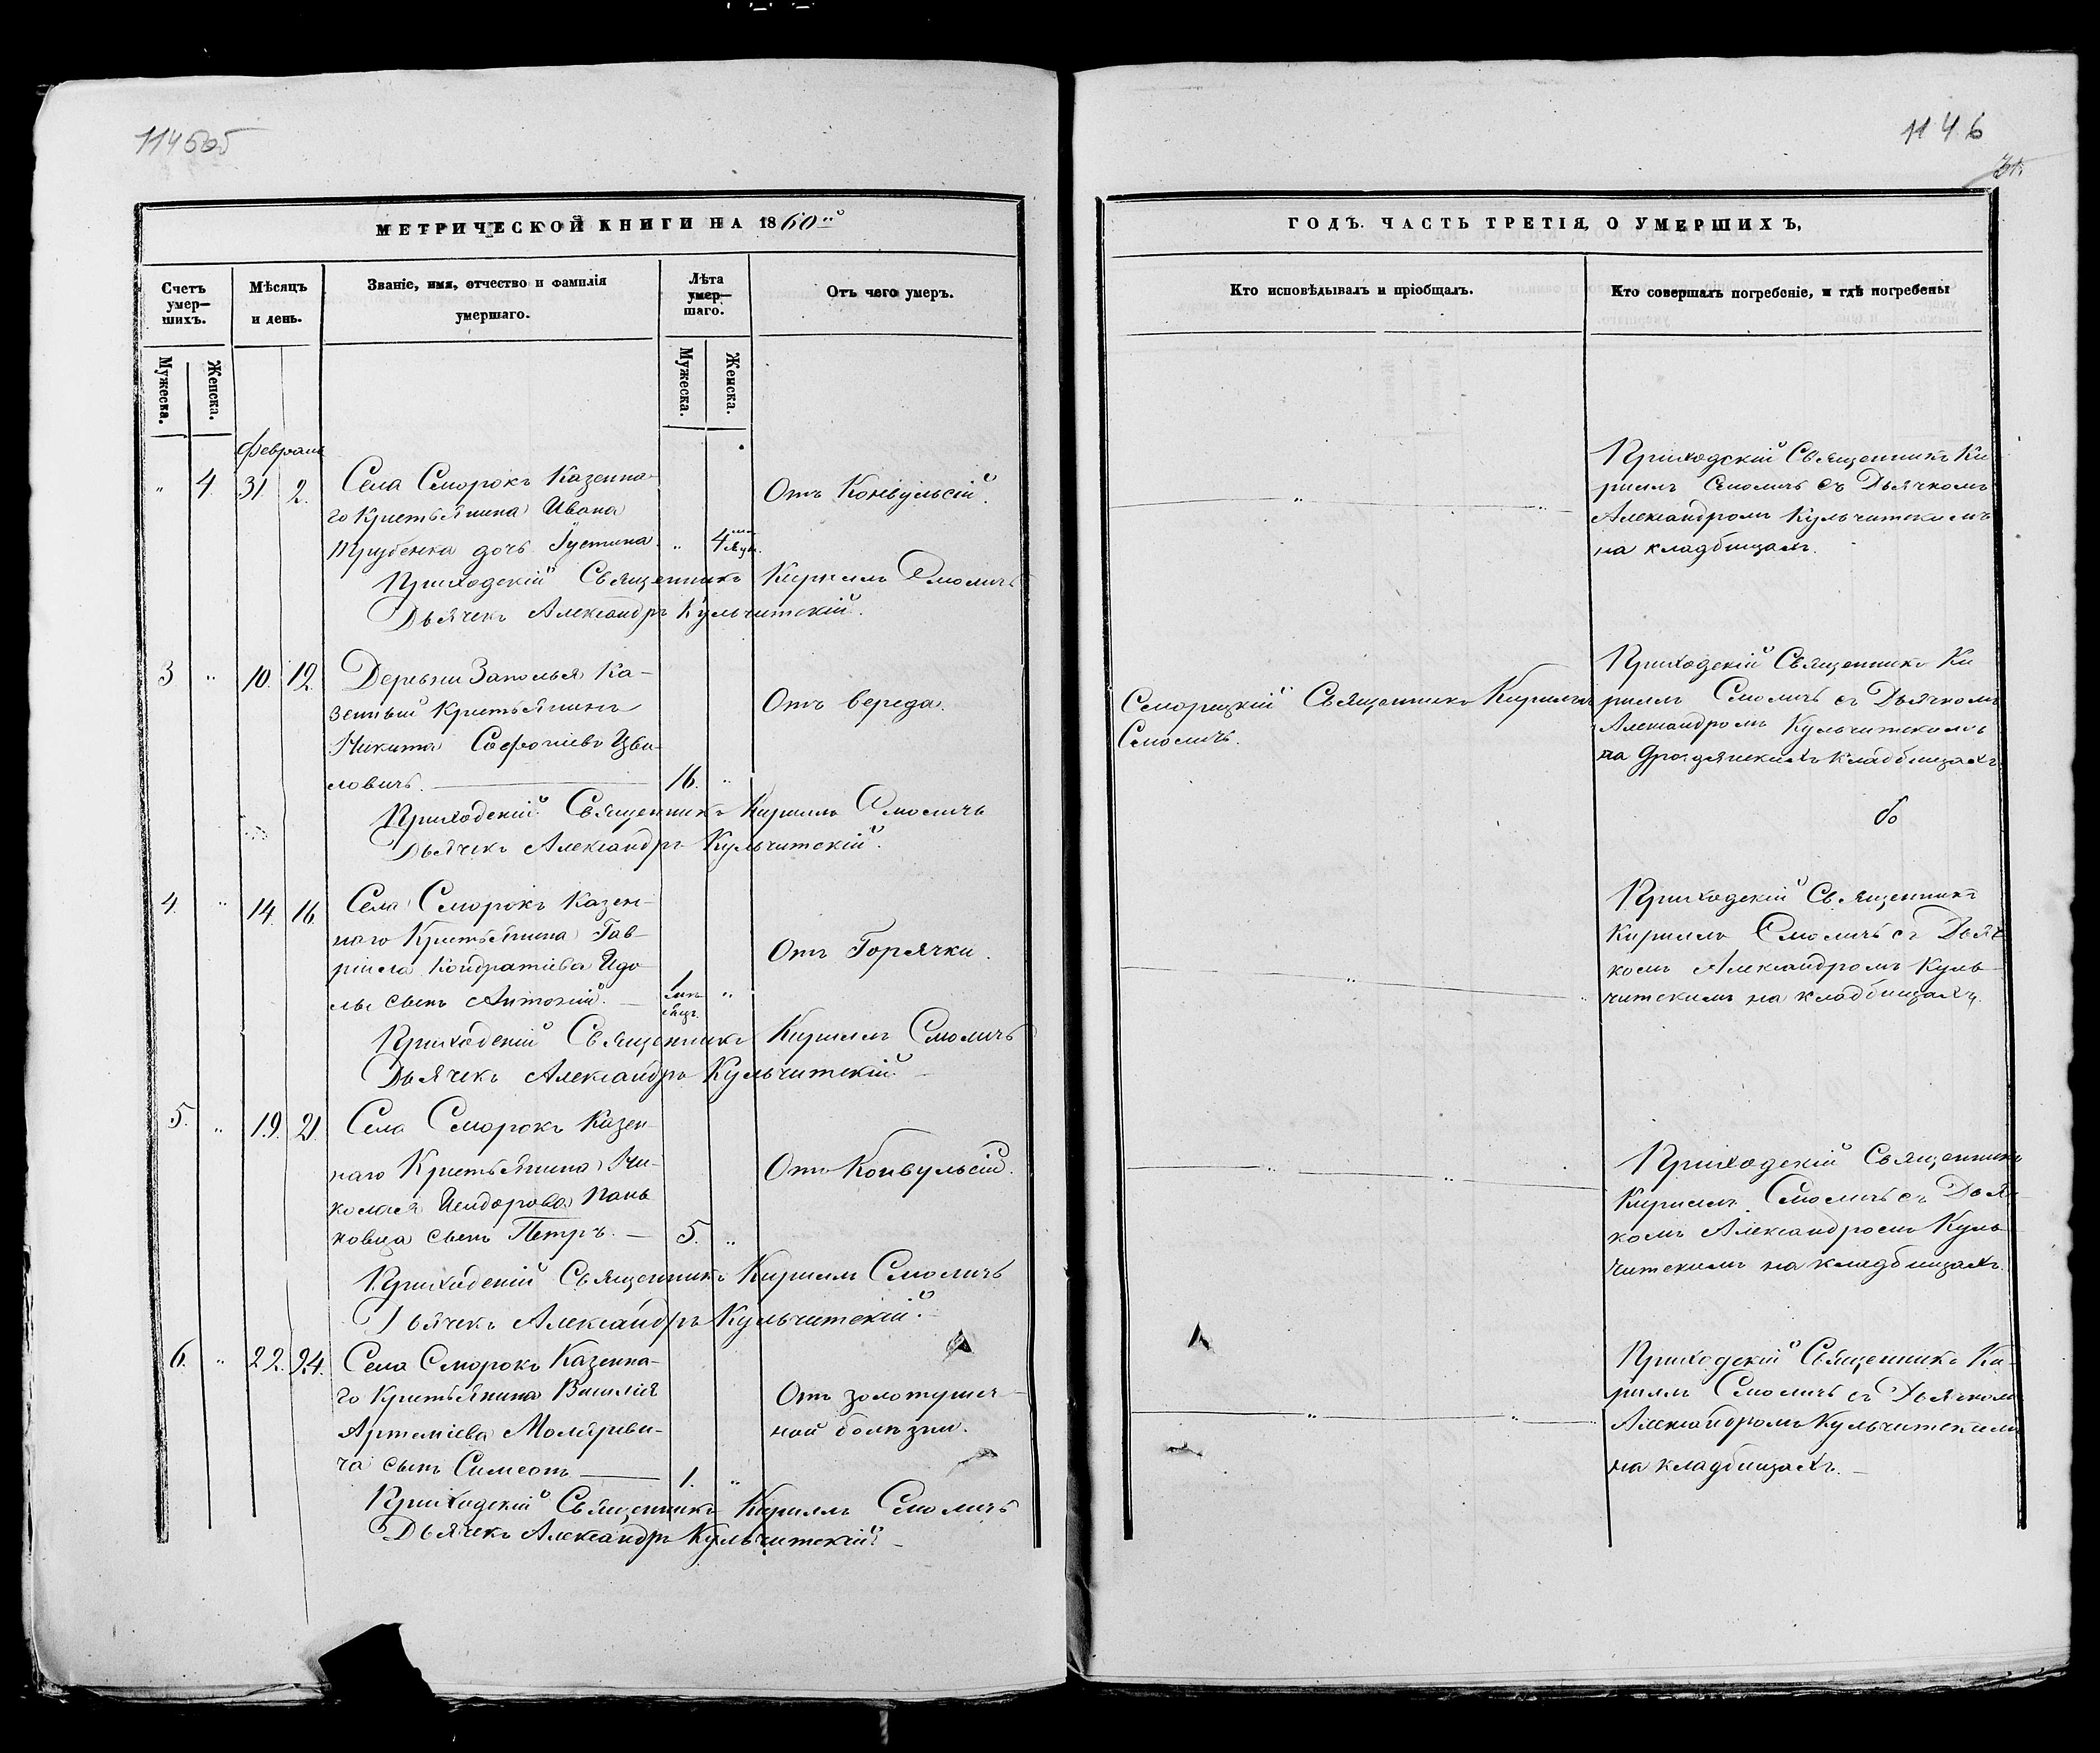 1146
МЕТРИЧЕСКОЙ КНИГИ НА 1860й
ГОДЪ. ЧАСТЬ ТРЕТІЯ, О УМЕРШИХЪ,
Счетъ умер—шихъ.
Мѣсяцъ и день.
Званіе, имя, отчество и фамилія умершаго.
Лѣта умер—шаго.
Отъ чего умеръ.
Кто исповѣдывалъ и пріобщалъ.
Кто совершалъ погребеніе, и гдѣ погребены
Мужеска.
Женска.
Мужеска.
Женска.
Февраль
" 4. 31 2.
Села Сморокъ Казенна-
го Крестьянина Ивана
Трубенка дочь Іустина. " 4
Отъ Конвульсій.
Приходскій Священникъ Ки
рилъ Смоличъ съ Дьячкомъ
Александромъ Кульчитскимъ
на кладбищахъ.
Приходскій Священникъ Кирилъ Смоличъ
Дьячекъ Александръ Кульчитскій.
3 " 10. 12.
Деревни Заполья Ка-
зенный Крестьянинъ
Никита Софроніевъ Цви-
ловичъ. 16. "
Отъ вереда.
Сморицкій Священникъ Кирилъ
Смоличъ.
Приходскій Священникъ Ки
рилъ Смоличъ съ Дьячкомъ
Александромъ Кульчитскимъ
на кладбищахъ
Приходскій Священникъ Кирилъ Смоличъ
Дьячекъ Александръ Кульчитскій.
4. " 14. 16
Села Сморокъ Казен-
наго Крестьянина Гав-
ріила Кондратіева
сынъ Антоній. "
Отъ Горячки.
Приходскій Священникъ
Кирилъ Смоличъ съ Дьяч
комъ Александромъ Куль-
читскимъ на кладбищахъ.
Приходскій Священникъ Кирилъ Смоличъ
Дьячекъ Александръ Кульчитскій.
5. " 19. 21.
Села Сморокъ Казен
наго Крестьянина Ни-
колая Исидорова Пань
ковца сынъ Петръ. — 5. "
Отъ Конвульсій.
Приходскій Священникъ
Кирилъ Смоличъ съ Дьяч
комъ Александромъ Куль
читскимъ на кладбищахъ.
Приходскій Священникъ Кирилъ Смоличъ
Дьячекъ Александръ Кульчитскій.
6. " 22. 24.
Села Сморокъ Казенна-
го Крестьянина Василія
Артеміева
ча сынъ Симеонъ — 1. "
Отъ золотушеч-
ной болѣзни.
Приходскій Священникъ Ки-
рилъ Смоличъ съ Дьячкомъ
Александромъ Кульчитскимъ
на кладбищахъ. —
Приходскій Священникъ Кирилъ Смоличъ
Дьячекъ Александръ Кульчитскій. —